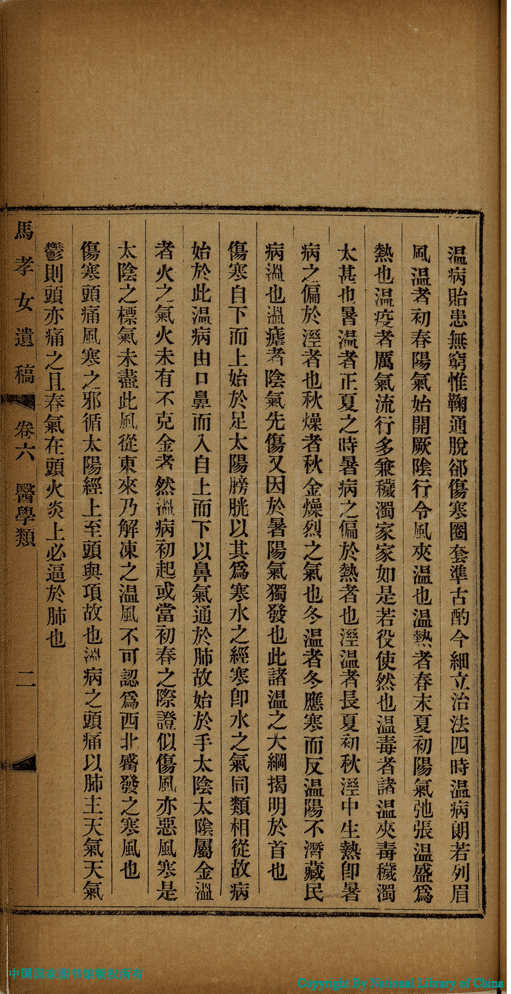 温病貽患無窮惟鞠通脫郤傷寒圈套準古酌今細立治法四時温病朗若列眉
風温者初春陽氣始開厥陰行令風夾温也温熱者春末夏初陽氣弛張温盛爲
熱也温疫者厲氣流行多兼穢濁家家如是若役使然也温毒者諸温夾毒穢濁
太甚也暑温者正夏之時暑病之偏於熱者也溼温者長夏初秋溼中生熱卽暑
病之偏於溼者也秋燥者秋金燥烈之氣也冬温者冬應寒而反温陽不潛藏民
病温也温瘧者陰氣先傷又因於暑陽氣獨發也此諸温之大綱揭明於首也
傷寒自下而上始於足太陽膀胱以其爲寒水之經寒卽水之氣同類相從故病
始於此温病由口鼻而入自上而下以鼻氣通於肺故始於手太陰太陰屬金温
者火之氣火未有不克金者然温病初起或當初春之際證似傷風亦惡風寒是
太陰之標氣未盡此風從東來乃解凍之温風不可認爲西北觱發之寒風也
傷寒頭痛風寒之邪循太陽經上至頭與項故也温病之頭痛以肺主天氣天氣
鬱則頭亦痛之且春氣在頭火炎上必逼於肺也
馬孝女遺稿 卷六 醫學類 二
Copyright By National Library of China